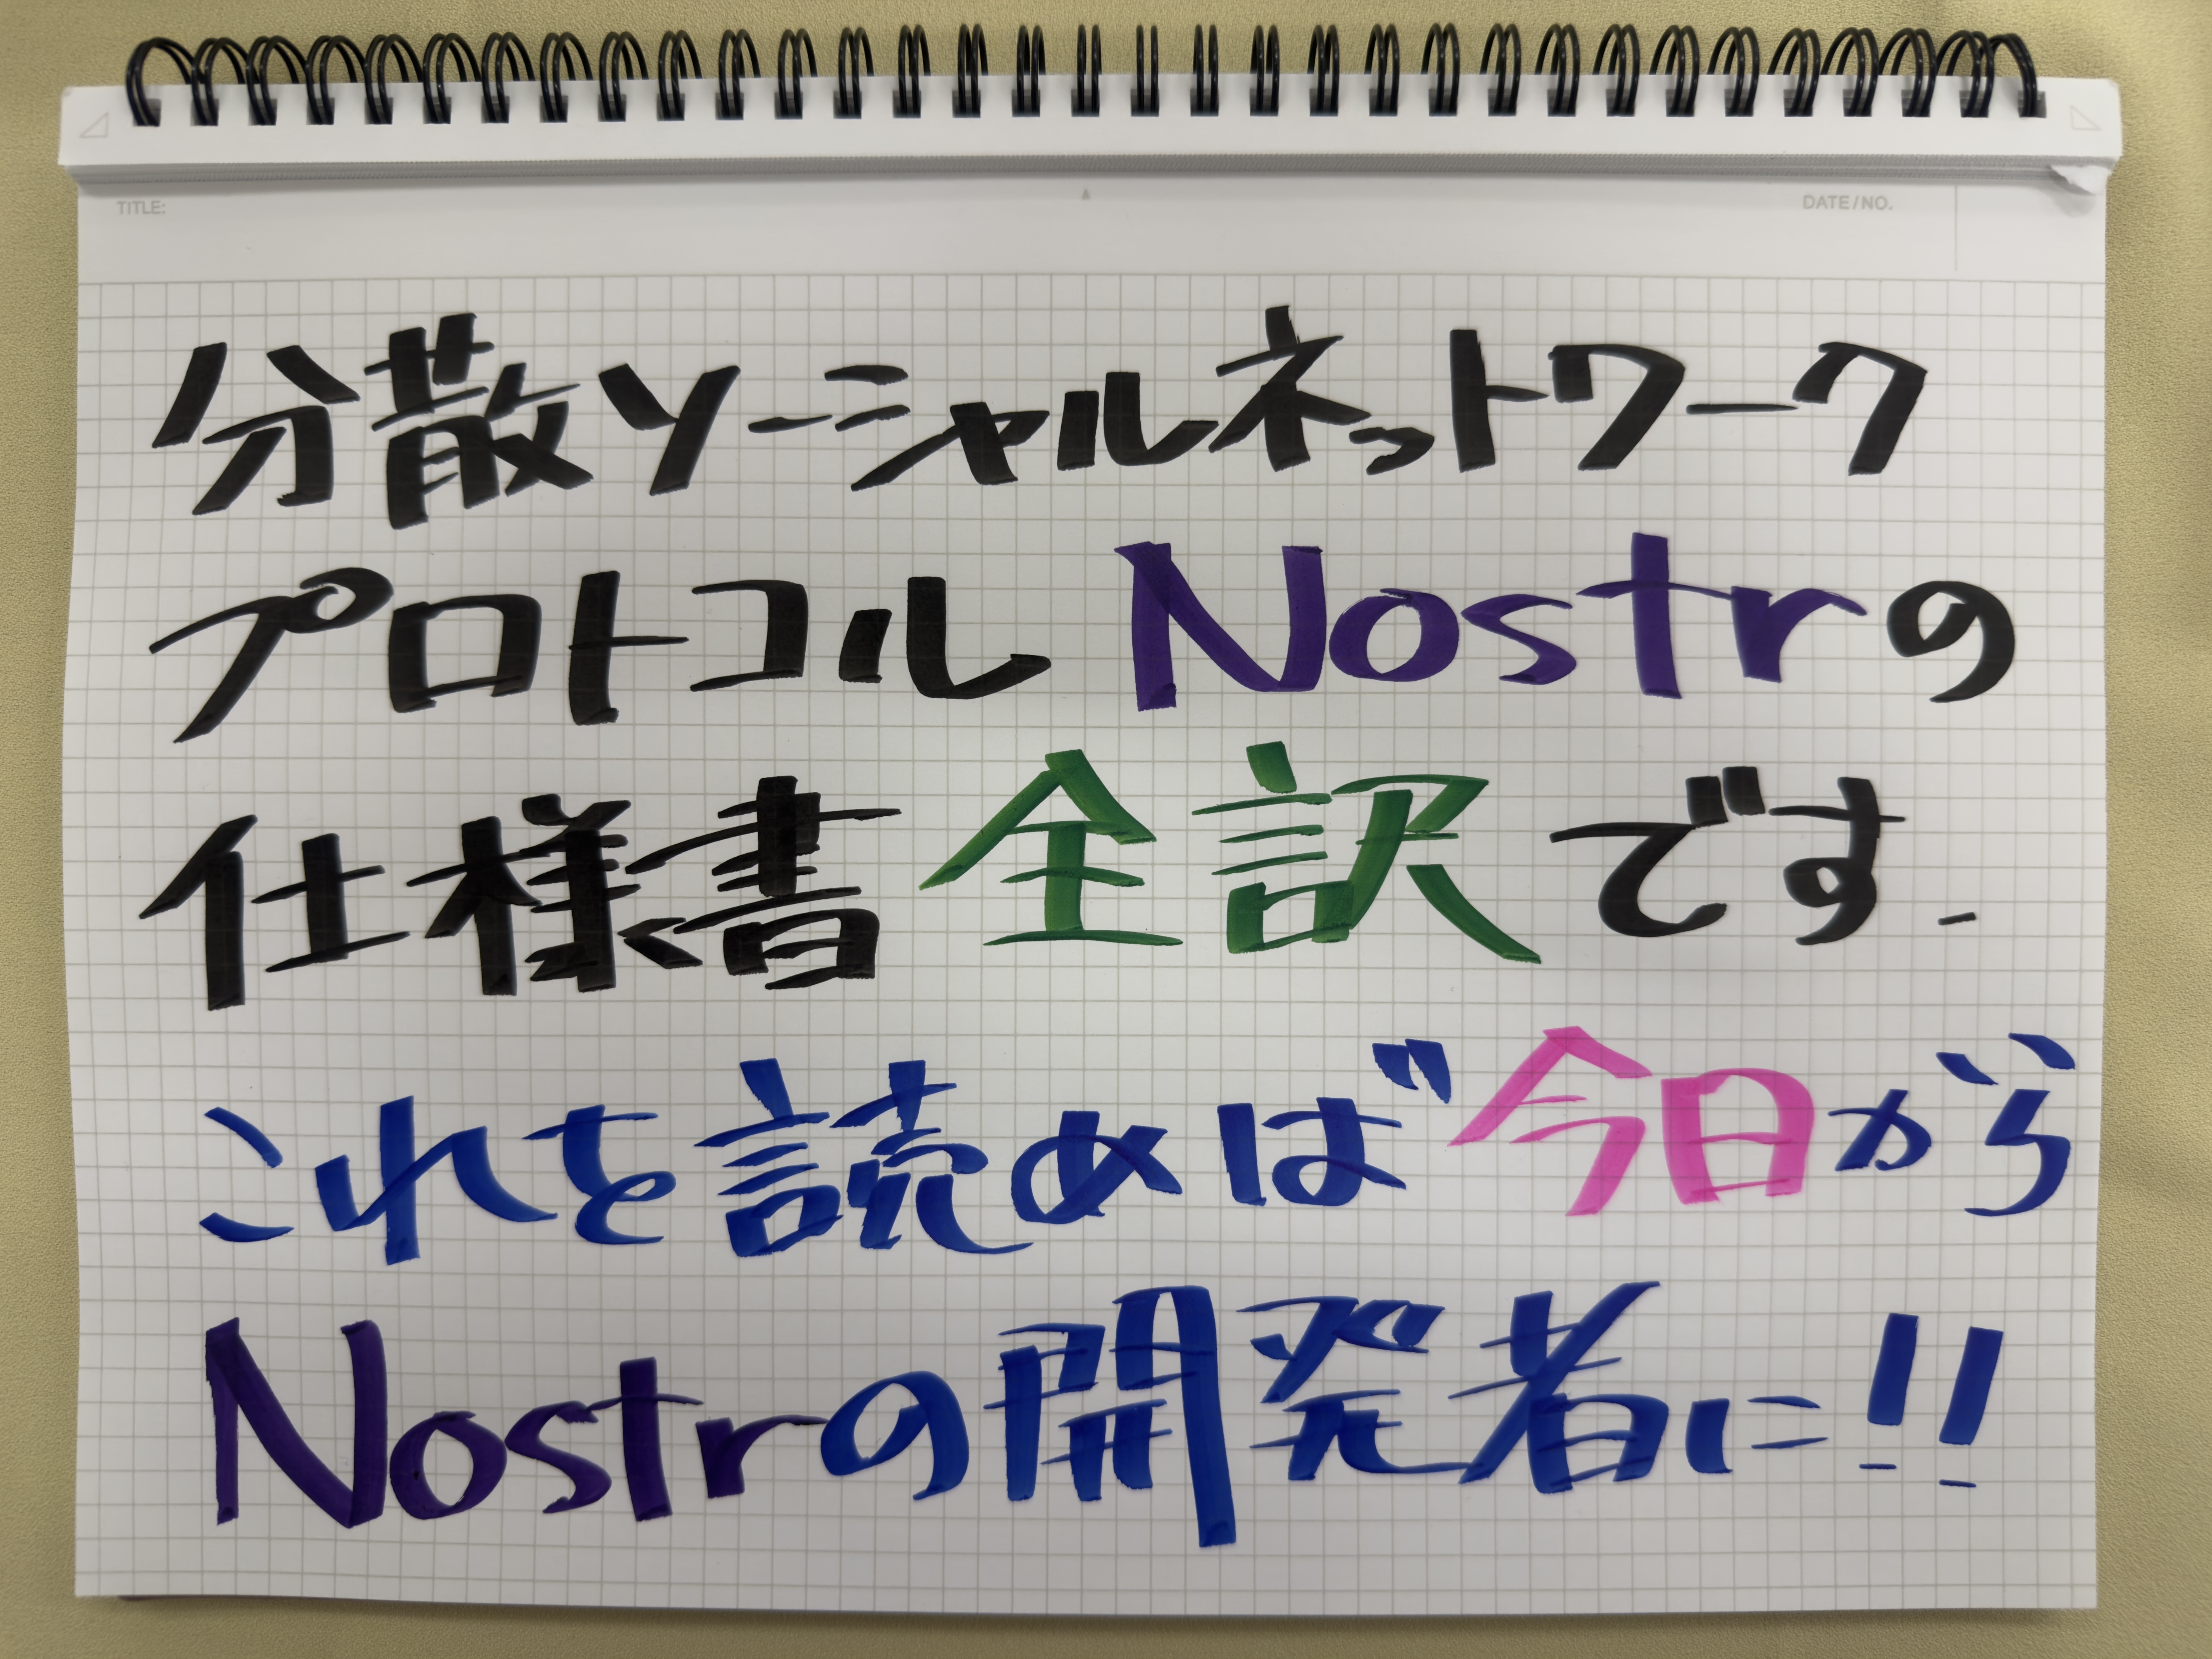 TITLE:
DATE/NO.
分散ソーシャルネットワーク
プロトコル Nostrの
仕様書 全訳 です.
これを読めば 今日から
Nostrの開発者に!!